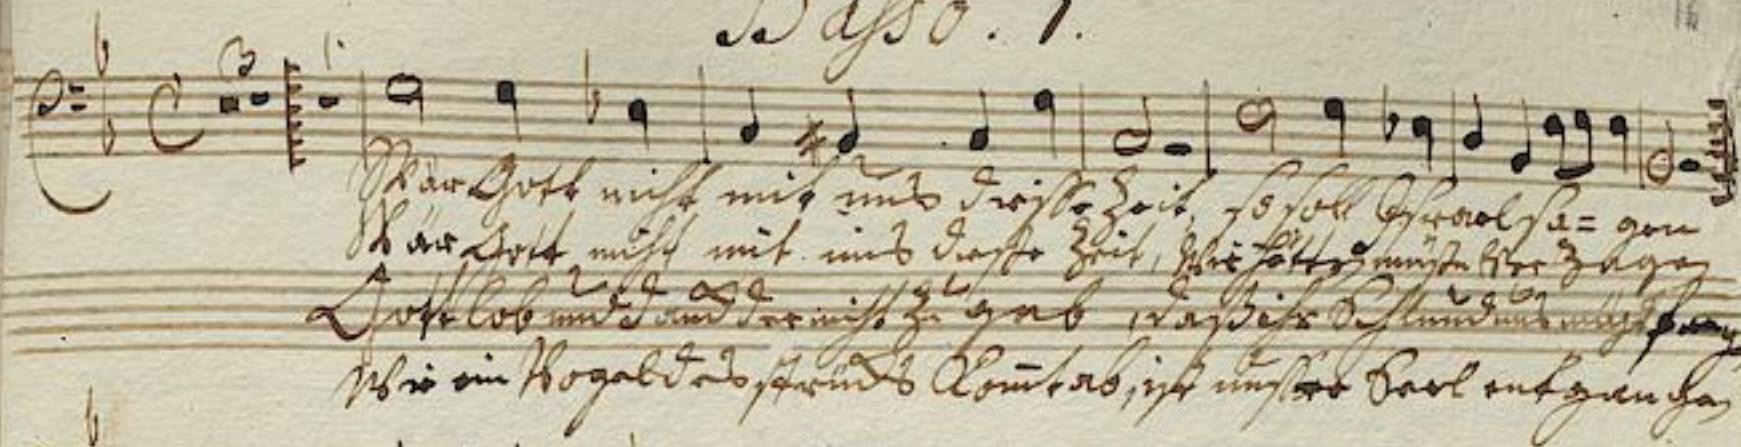 Basso. 1.
3 1
Wär Gott nicht mit uns diesse Zeit, so soll Israel sa=gen
Wär Gott nicht mit uns diesse Zeit, Wir hätten müssen verzagen
Gott lob und danck der nicht zu gab, daß ihr Schlund uns möcht fangen
Wie ein Vogel des stricks kommt ab, ist unsser Seel entgangen